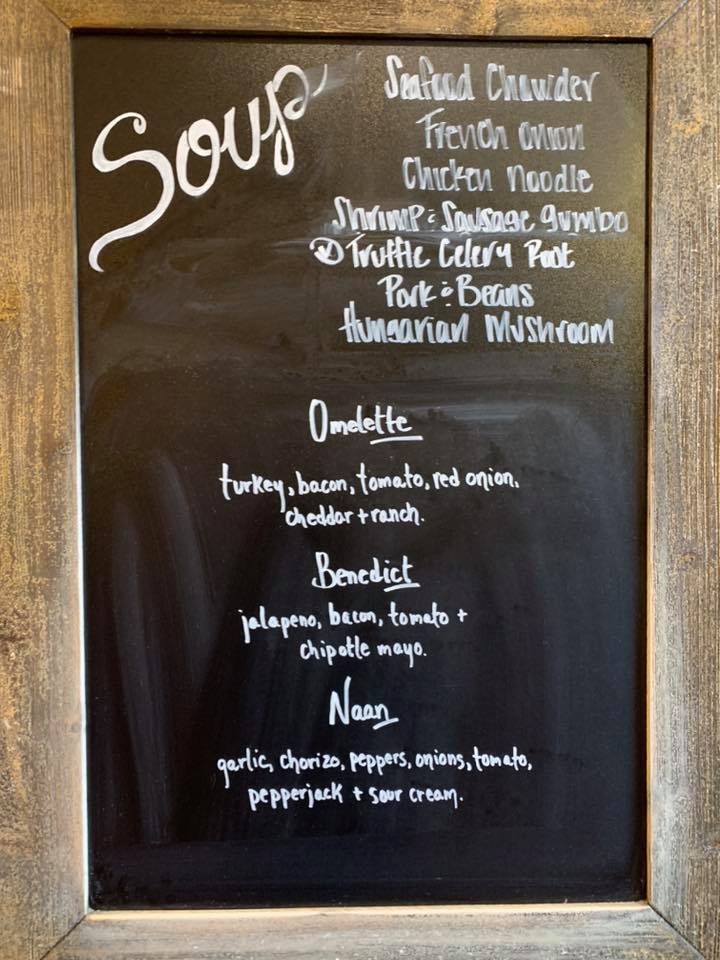 Soup
Seafood Chowder
French Onion
Chicken Noodle
Shrimp & Sausage Gumbo
Ⓥ Truffle Celery Root
Pork & Beans
Hungarian Mushroom
Omelette
turkey, bacon, tomato, red onion,
cheddar + ranch.
Benedict
jalapeno, bacon, tomato +
chipotle mayo.
Naan
garlic, chorizo, peppers, onions, tomato,
pepperjack + sour cream.